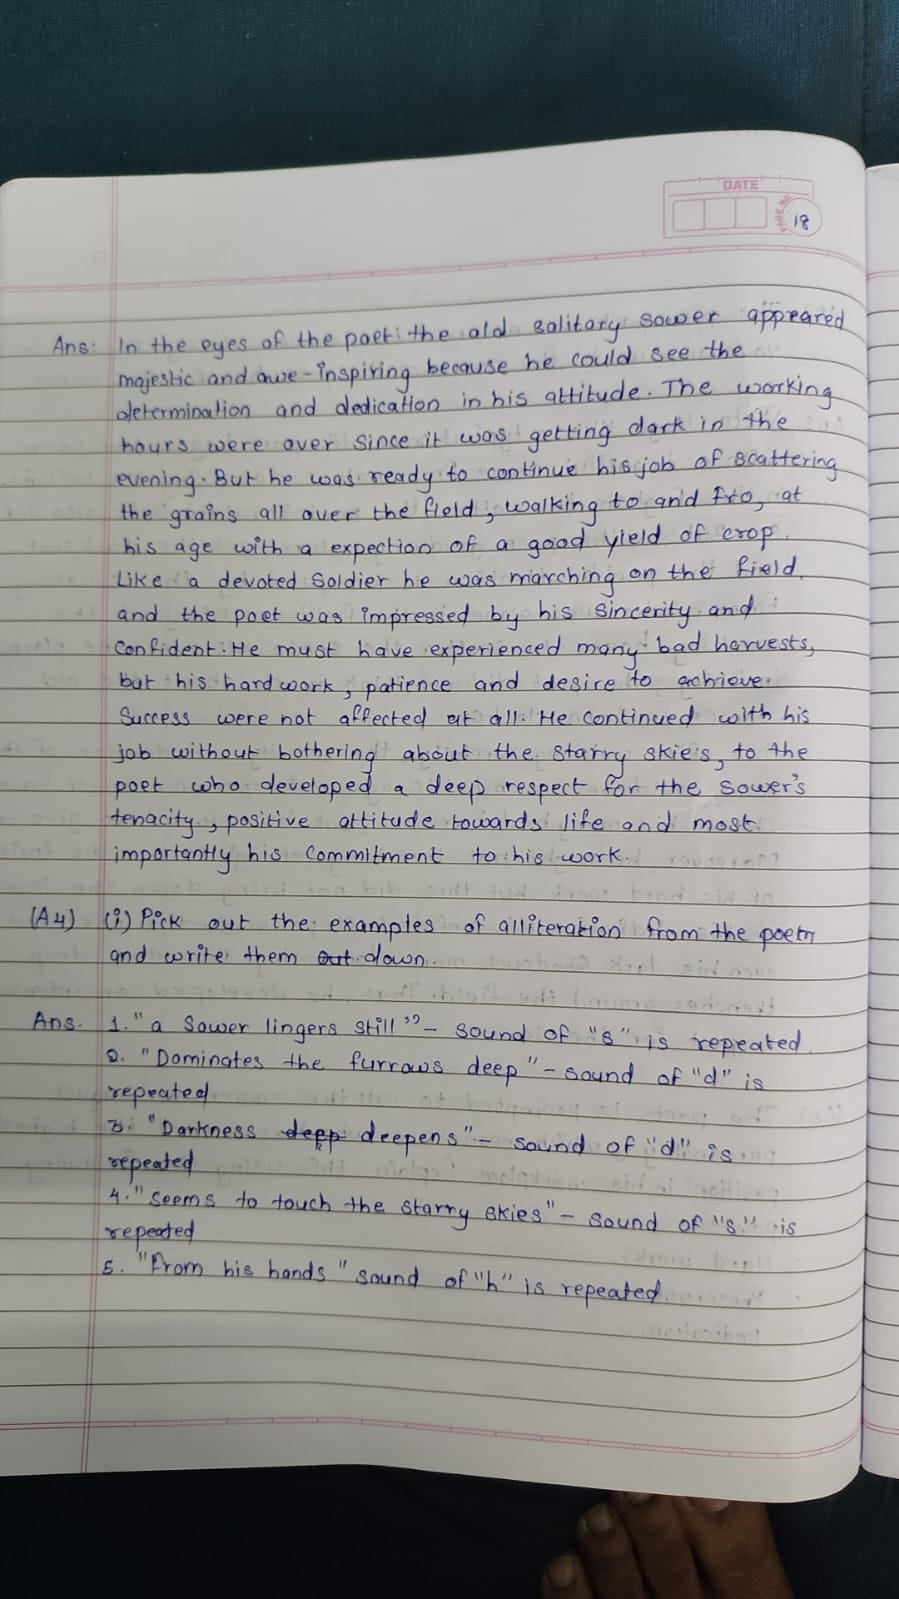 DATE
PAGE NO.
18
Ans: In the eyes of the poet the old solitary sower appeared
majestic and awe-inspiring because he could see the
determination and dedication in his attitude. The working
hours were over since it was getting dark in the
evening. But he was ready to continue his job of scattering
the grains all over the field, walking to and fro, at
his age with a expection of a good yield of crop.
Like a devoted soldier he was marching on the field
and the poet was impressed by his sincerity and
confident. He must have experienced many bad harvests,
but his hard work, patience and desire to achieve
success were not affected at all. He continued with his
job without bothering about the starry skies, to the
poet who developed a deep respect for the sower's
tenacity, positive attitude towards life and most
importantly his commitment to his work.
(A4) (i) Pick out the examples of alliteration from the poem
and write them out down.
Ans. 1. "a sower lingers still" - sound of "s" is repeated
2. "Dominates the furrows deep" - sound of "d" is
repeated
3. "Darkness deep deepens" - sound of "d" is
repeated
4. "seems to touch the starry skies" - sound of "s" is
repeated
5. "From his hands" sound of "h" is repeated.